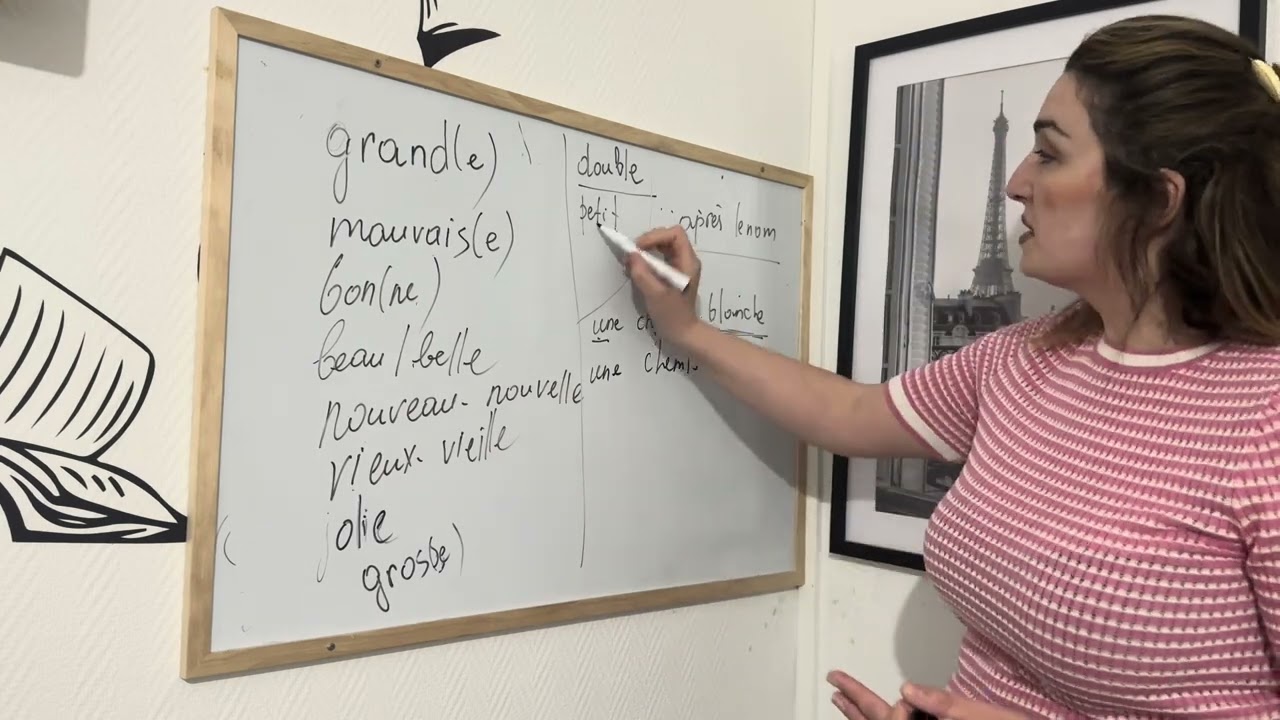 grand(e)
mauvais(e)
bon(ne)
beau/belle
nouveau - nouvelle
vieux - vieille
jolie
gros(se)
double
petit
après le nom
une blanche
une